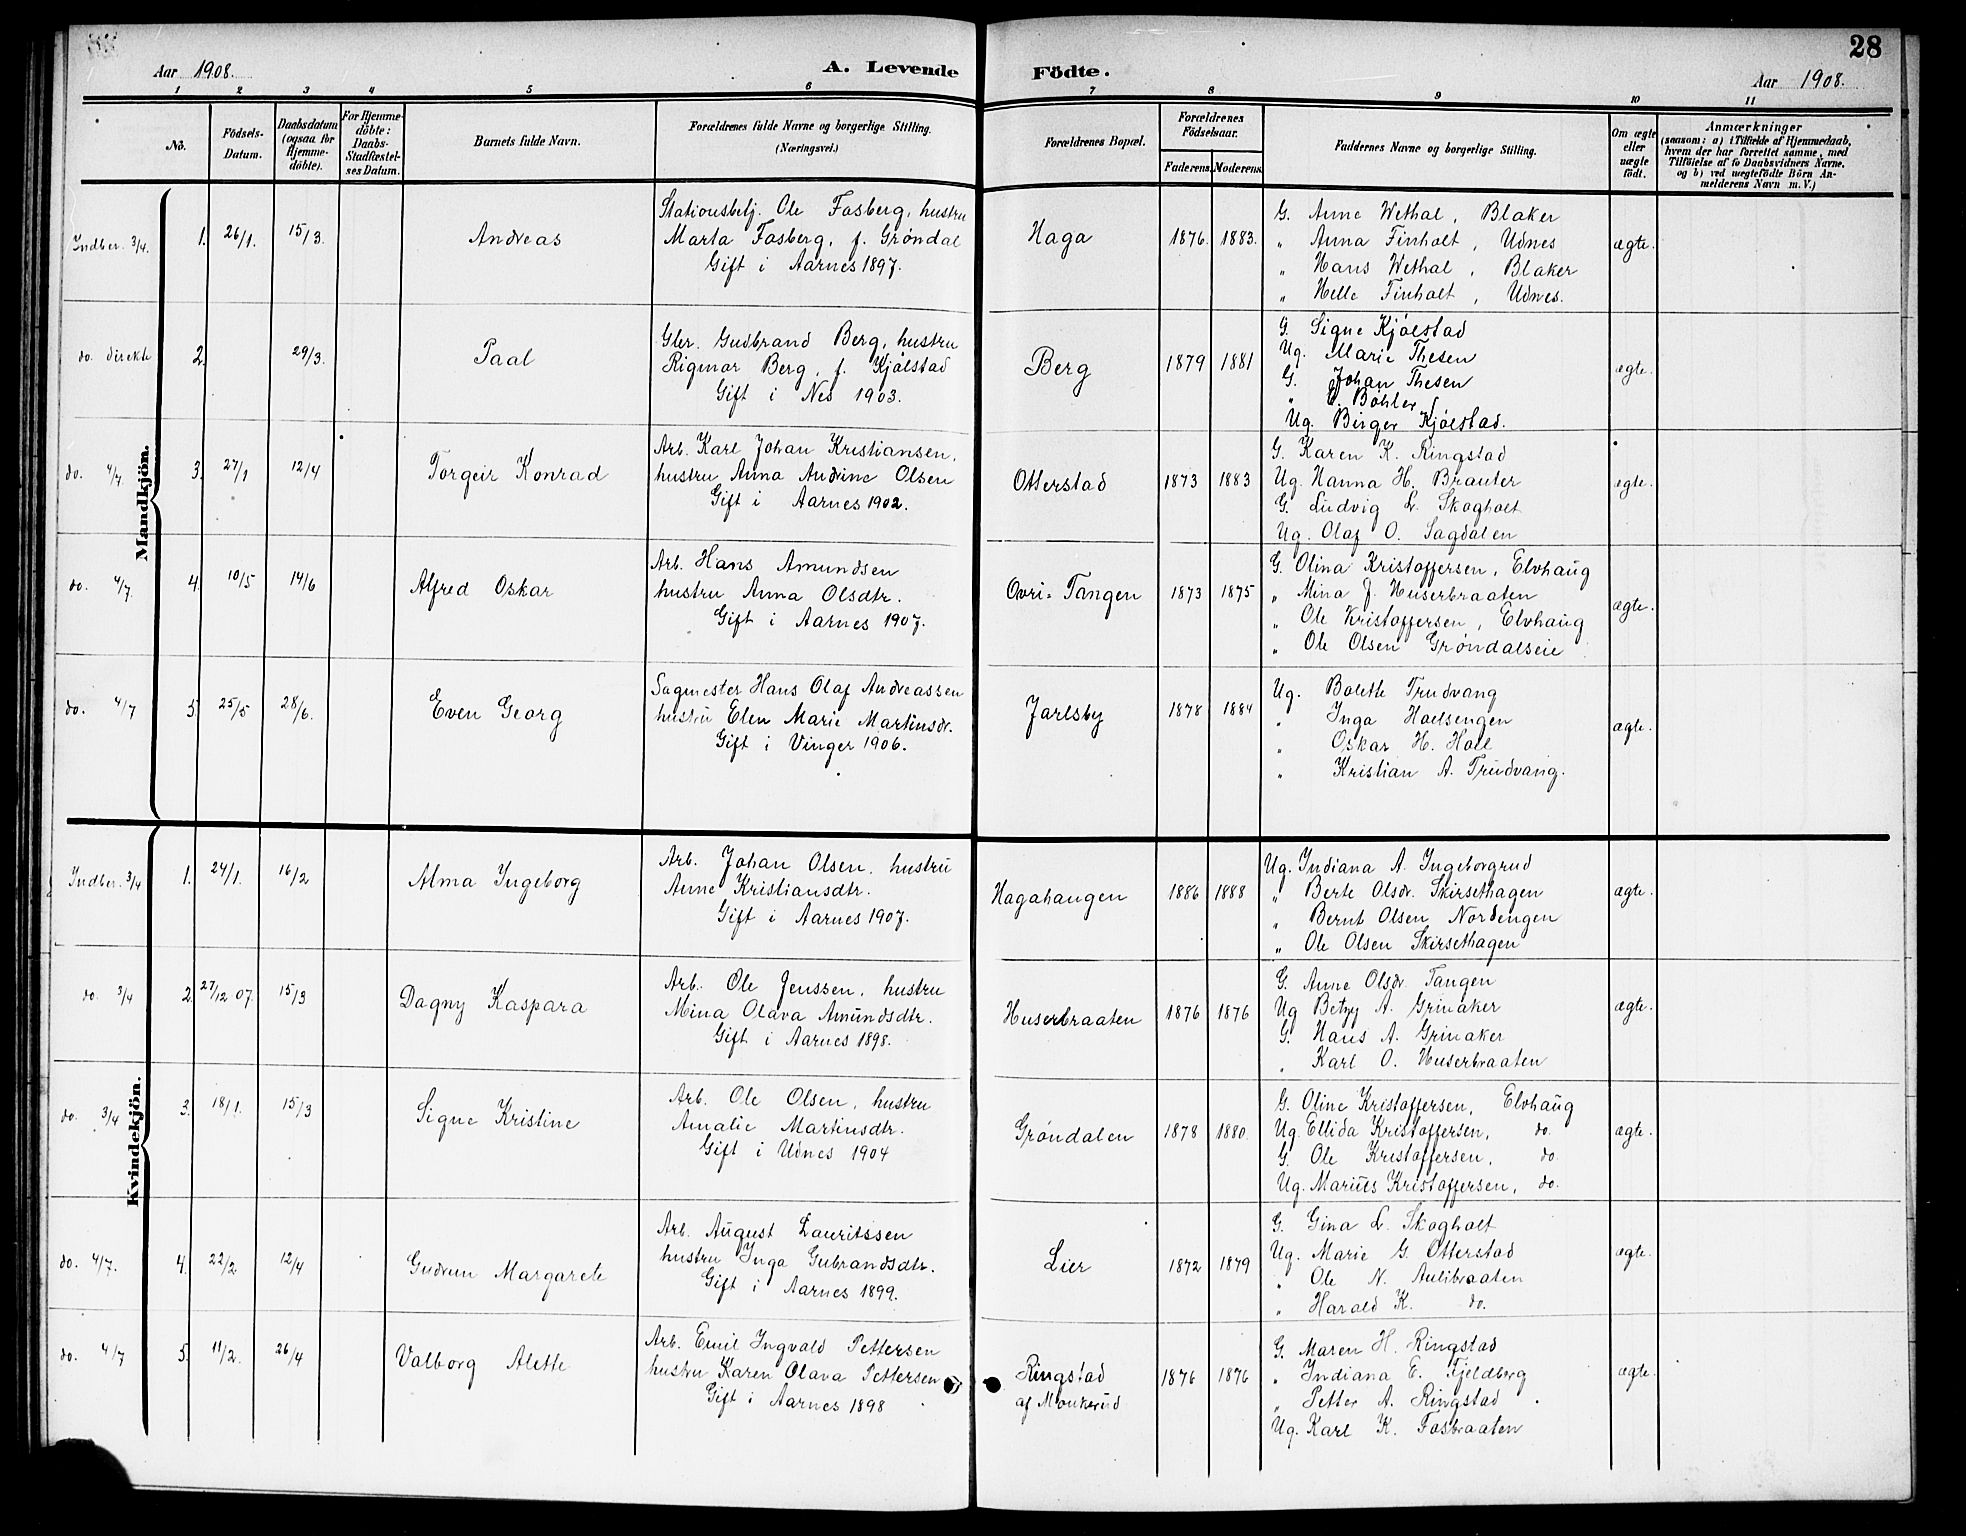 28
Aar 1908.
A. Levende Födte.
Aar 1908.
1 2 3 4 5 6 7 8 9 10 11
No.
Födsels-Datum.
Daabsdatum (ogsaa for Hjemme-döbte).
For Hjemme-döbte: Daabs-Stadfæstel-ses Datum.
Barnets fulde Navn.
Forældrenes fulde Navne og borgerlige Stilling. (Næringsvei.)
Forældrenes Bopæl.
Forældrenes Födselsaar.
Faderens. Moderens.
Faddernes Navne og borgerlige Stilling.
Om ægte eller uægte födt.
Anmærkninger
(saasom: a) i Tilfælde af Hjemmedaab,
hvem der har forrettet samme, med
Tilföielse af to Daabsvidners Navne,
og b) ved uægtefödte Börn An-
melderens Navn m. V.)
Mandkjön.
Indber. 3/4. 1. 26/1. 15/3. Andreas
Stationsbetj. Ole Fosberg, hustru
Marta Fosberg, f. Grøndal
Gift i Aarnes 1897.
Haga 1876. 1883.
G. Anne Wethal, Blaker
" Anna Finholt, Udnes
" Hans Wethal, Blaker
" Helle Finholt, Udnes.
ægte.
do. direkte 2. 29/3. Paal
Gbr. Gudbrand Berg, hustru
Rigmor Berg, f. Kjølstad
Gift i Nes 1903.
Berg 1879 1881
G. Signe Kjølstad
Ug. Marie Thesen
G. Johan Thesen
" E. Bøhler
Ug. Birger Kjølstad.
ægte.
do. 4/7. 3. 27/1 12/4 Torgeir Konrad
Arb. Karl Johan Kristiansen,
hustru Anna Andrine Olsen
Gift i Aarnes 1902.
Otterstad 1873 1883
G. Karen K. Ringstad
Ug. Hanna H. Brauter
G. Ludvig L. Skogholt
Ug. Olaf O. Sagdalen
ægte.
do. 4/7. 4. 10/5 14/6 Alfred Oskar
Arb. Hans Amundsen
hustru Anna Olsdtr.
Gift i Aarnes 1907.
Øvri-Tangen 1873 1875
G. Olina Kristoffersen, Elvhaug
" Mina J. Huserbraaten
" Ole Kristoffersen, Elvhaug
" Ole Olsen Grøndalseie
ægte.
do. 4/7 5. 25/5 28/6. Even Georg
Sagmester Hans Olaf Andreassen
hustru Elen Marie Martinsdr.
Gift i Vinger 1906.
Jarlsby 1878 1884
Ug. Bolette Trudvang
" Inga Hoelsengen
" Oskar H. Hoel
" Kristian A. Trudvang.
ægte.
Kvindekjön.
Indber. 3/4 1. 24/1. 16/2 Alma Ingeborg
Arb. Johan Olsen, hustru
Anne Kristiansdtr.
Gift i Aarnes 1907.
Hagahaugen 1886 1888
Ug. Indiana A. Ingeborgrud
" Berte Olsdr. Skirsethagen
" Bernt Olsen Nordengen
" Ole Olsen Skirsethagen
ægte.
do. 3/4 2. 27/12 07. 15/3 Dagny Kaspara
Arb. Ole Jenssen, hustru
Mina Olava Amundsdtr.
Gift i Aarnes 1898.
Huserbraaten 1876 1876
G. Anne Olsdr. Tangen
Ug Betzy A. Grinaker
G. Hans A. Grinaker
" Karl O. Huserbraaten
ægte.
do. 3/4 3. 18/1. 15/3 Signe Kristine
Arb. Ole Olsen, hustru
Amalie Martinsdtr.
Gift i Udnes 1904
Grøndalen 1878 1880.
G. Oline Kristoffersen, Elvhaug
Ug. Ellida Kristoffersen, do.
G. Ole Kristoffersen, do
Ug. Marius Kristoffersen, do.
ægte.
do. 4/7. 4. 22/2 12/4 Gudrun Margarete
Arb. August Lauritssen
hustru Inga Gubrandsdtr.
Gift i Aarnes 1899.
Lier 1872 1879
G. Gina L. Skogholt
Ug. Marie G. Otterstad
" Ole N. Aulibraaten
" Harald K. do.
ægte.
do. 4/7 5. 11/2. 26/4 Valborg Alette
Arb. Emil Ingvald Pettersen
hustru Karen Olava Pettersen
Gift i Aarnes 1898
Ringstad
af Monkerud
1876 1876
G. Maren H. Ringstad
" Indiana E. Fjeldberg
" Petter A. Ringstad
Ug. Karl K. Fosbraaten
ægte.